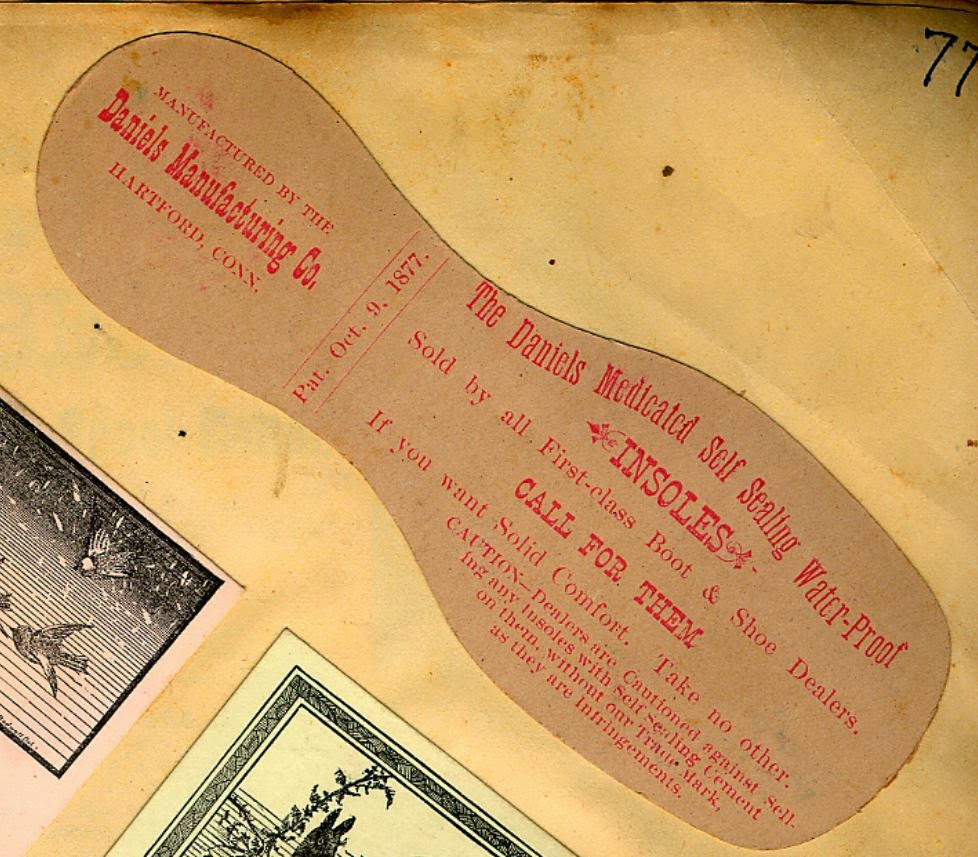 77
MANUFACTURED BY THE
Daniels Manufacturing Co.
HARTFORD, CONN.
Pat. Oct. 9, 1877.
The Daniels Medicated Self Sealing Water-Proof
INSOLES
Sold by all First-class Boot & Shoe Dealers.
CALL FOR THEM
If you want Solid Comfort. Take no other.
CAUTION—Dealers are Cautioned against Sell-
ing any Insoles with Self Sealing Cement
on them, without our Trade Mark,
as they are Infringements.